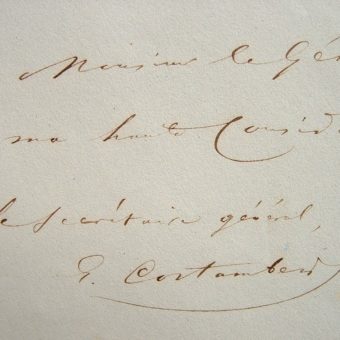 Monsieur le Gén
ma haute Consid
le secrétaire général,
E. Cortambert